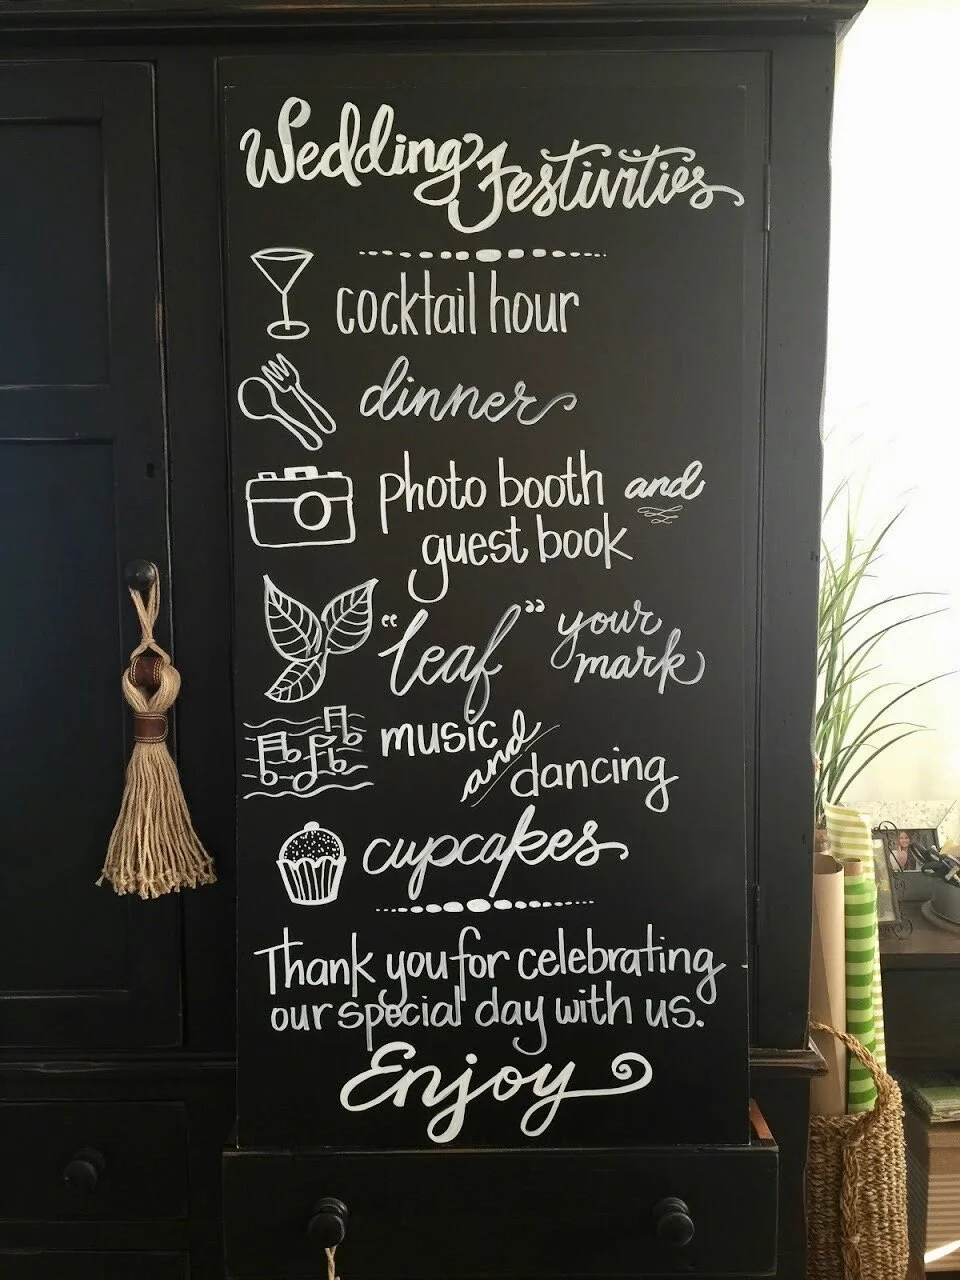 Wedding Festivities
cocktail hour
dinner
photo booth and
guest book
"leaf" your
mark
music
and
dancing
cupcakes
Thank you for celebrating
our special day with us.
Enjoy